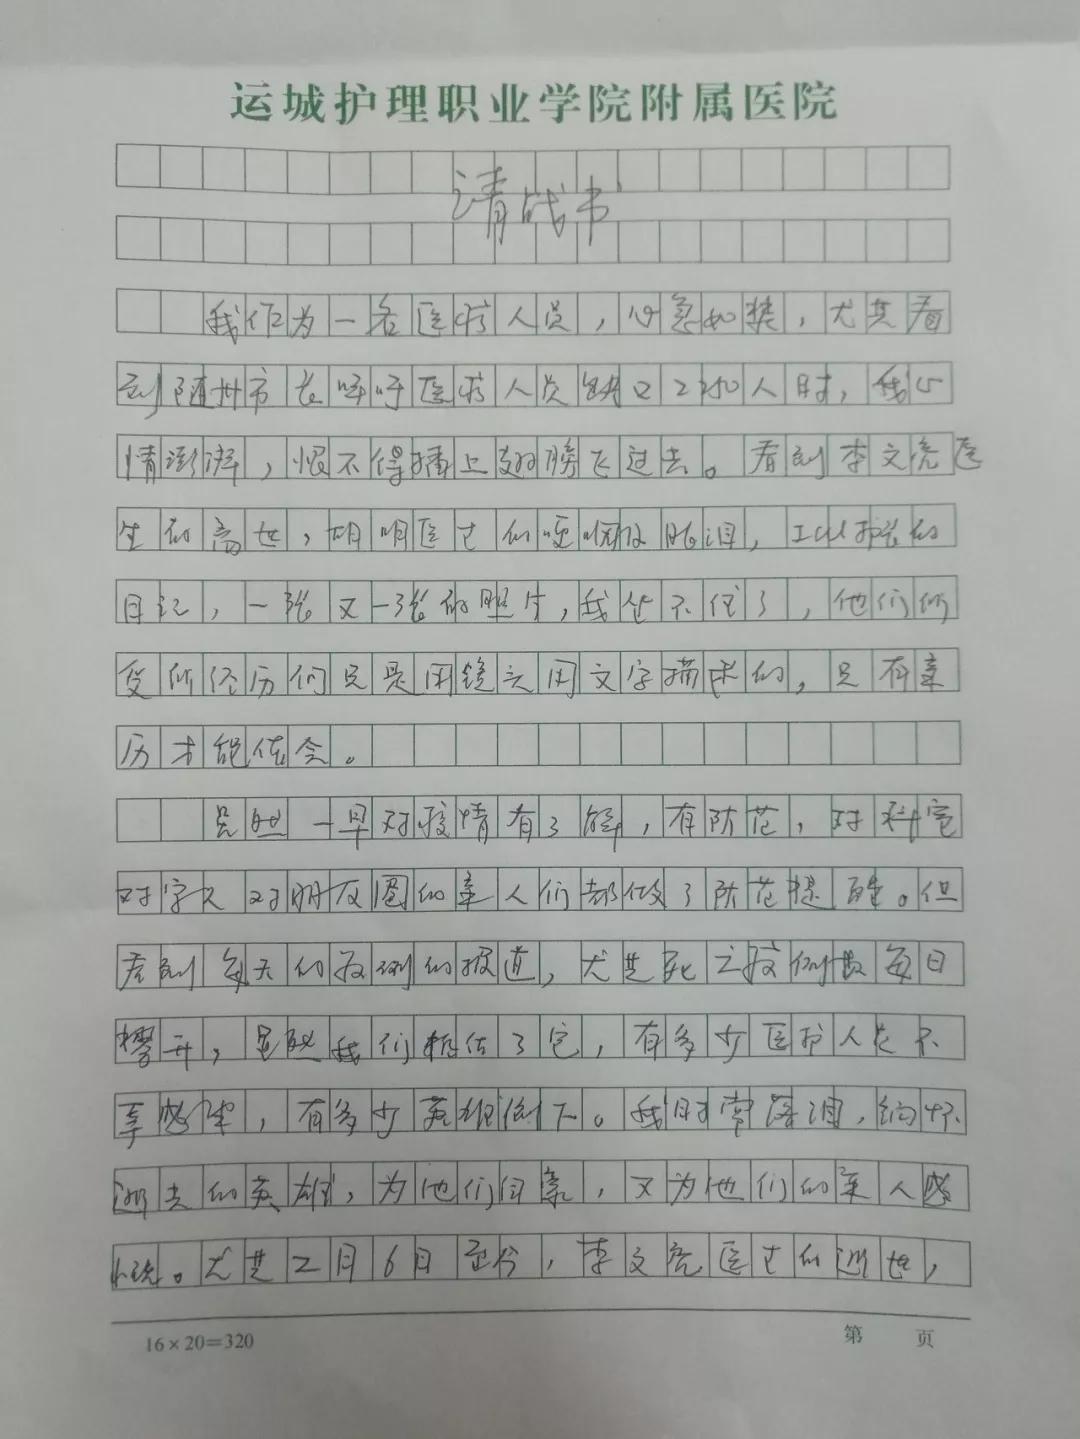 运城护理职业学院附属医院
请战书
我作为一名医疗人员，心急如焚，尤其看
到随州市长呼吁医疗人员缺口2250人时，我心
情澎湃，恨不得插上翅膀飞过去。看到李文亮医
生的离世，胡明医生的哽咽及眼泪，
日记，一张又一张的照片，我坐不住了，他们所
受所经历仍只是用镜头用文字描述的，只有亲
历才能体会。
虽然一早对疫情有了解，有防范，对科室
对家人对朋友圈的亲人们都做了防范提醒。但
看到每天的疫例的报道，尤其死亡疫例数每日
攀升，虽说我们抵估了它，有多少医护人员不
幸感染，有多少英雄倒下。我时常落泪，缅怀
逝去的英雄，为他们自豪，又为他们的亲人
。尤其二月6日至今，李文亮医生的逝世，
16×20=320
第 页